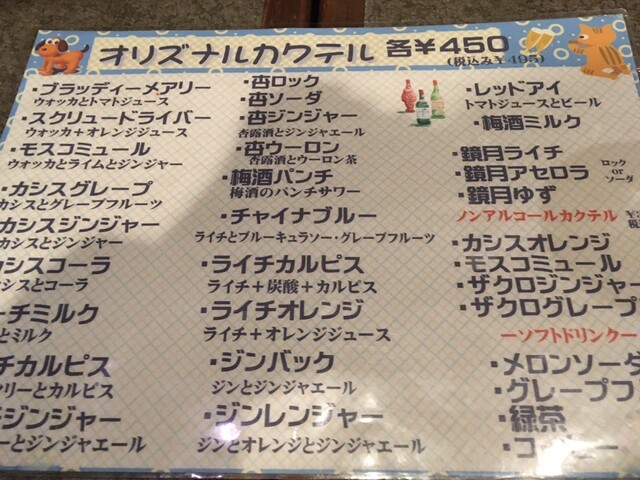 オリズナルカクテル 各¥450
(税込み¥495)
・ブラッディーメアリー
ウォッカとトマトジュース
・スクリュードライバー
ウォッカ+オレンジジュース
・モスコミュール
ウォッカとライムとジンジャー
・カシスグレープ
カシスとグレープフルーツ
カシスジンジャー
カシスとジンジャー
カシスコーラ
カシスとコーラ
ーチミルク
とミルク
チカルピス
リーとカルピス
ジンジャー
ーとジンジャエール
・杏ロック
・杏ソーダ
・杏ジンジャー
杏露酒とジンジャエール
・杏ウーロン
杏露酒とウーロン茶
・梅酒パンチ
梅酒のパンチサワー
・チャイナブルー
ライチとブルーキュラソー・グレープフルーツ
・ライチカルピス
ライチ+炭酸+カルピス
・ライチオレンジ
ライチ+オレンジジュース
・ジンバック
ジンとジンジャエール
・ジンレンジャー
ジンとオレンジとジンジャエール
・レッドアイ
トマトジュースとビール
・梅酒ミルク
・鏡月ライチ
・鏡月アセロラ
・鏡月ゆず
ロック
or
ソーダ
ノンアルコールカクテル ¥
税
・カシスオレンジ
・モスコミュール
・ザクロジンジャー
・ザクログレープ
ーソフトドリンクー
・メロンソーダ
・グレープフ
・緑茶
・コ